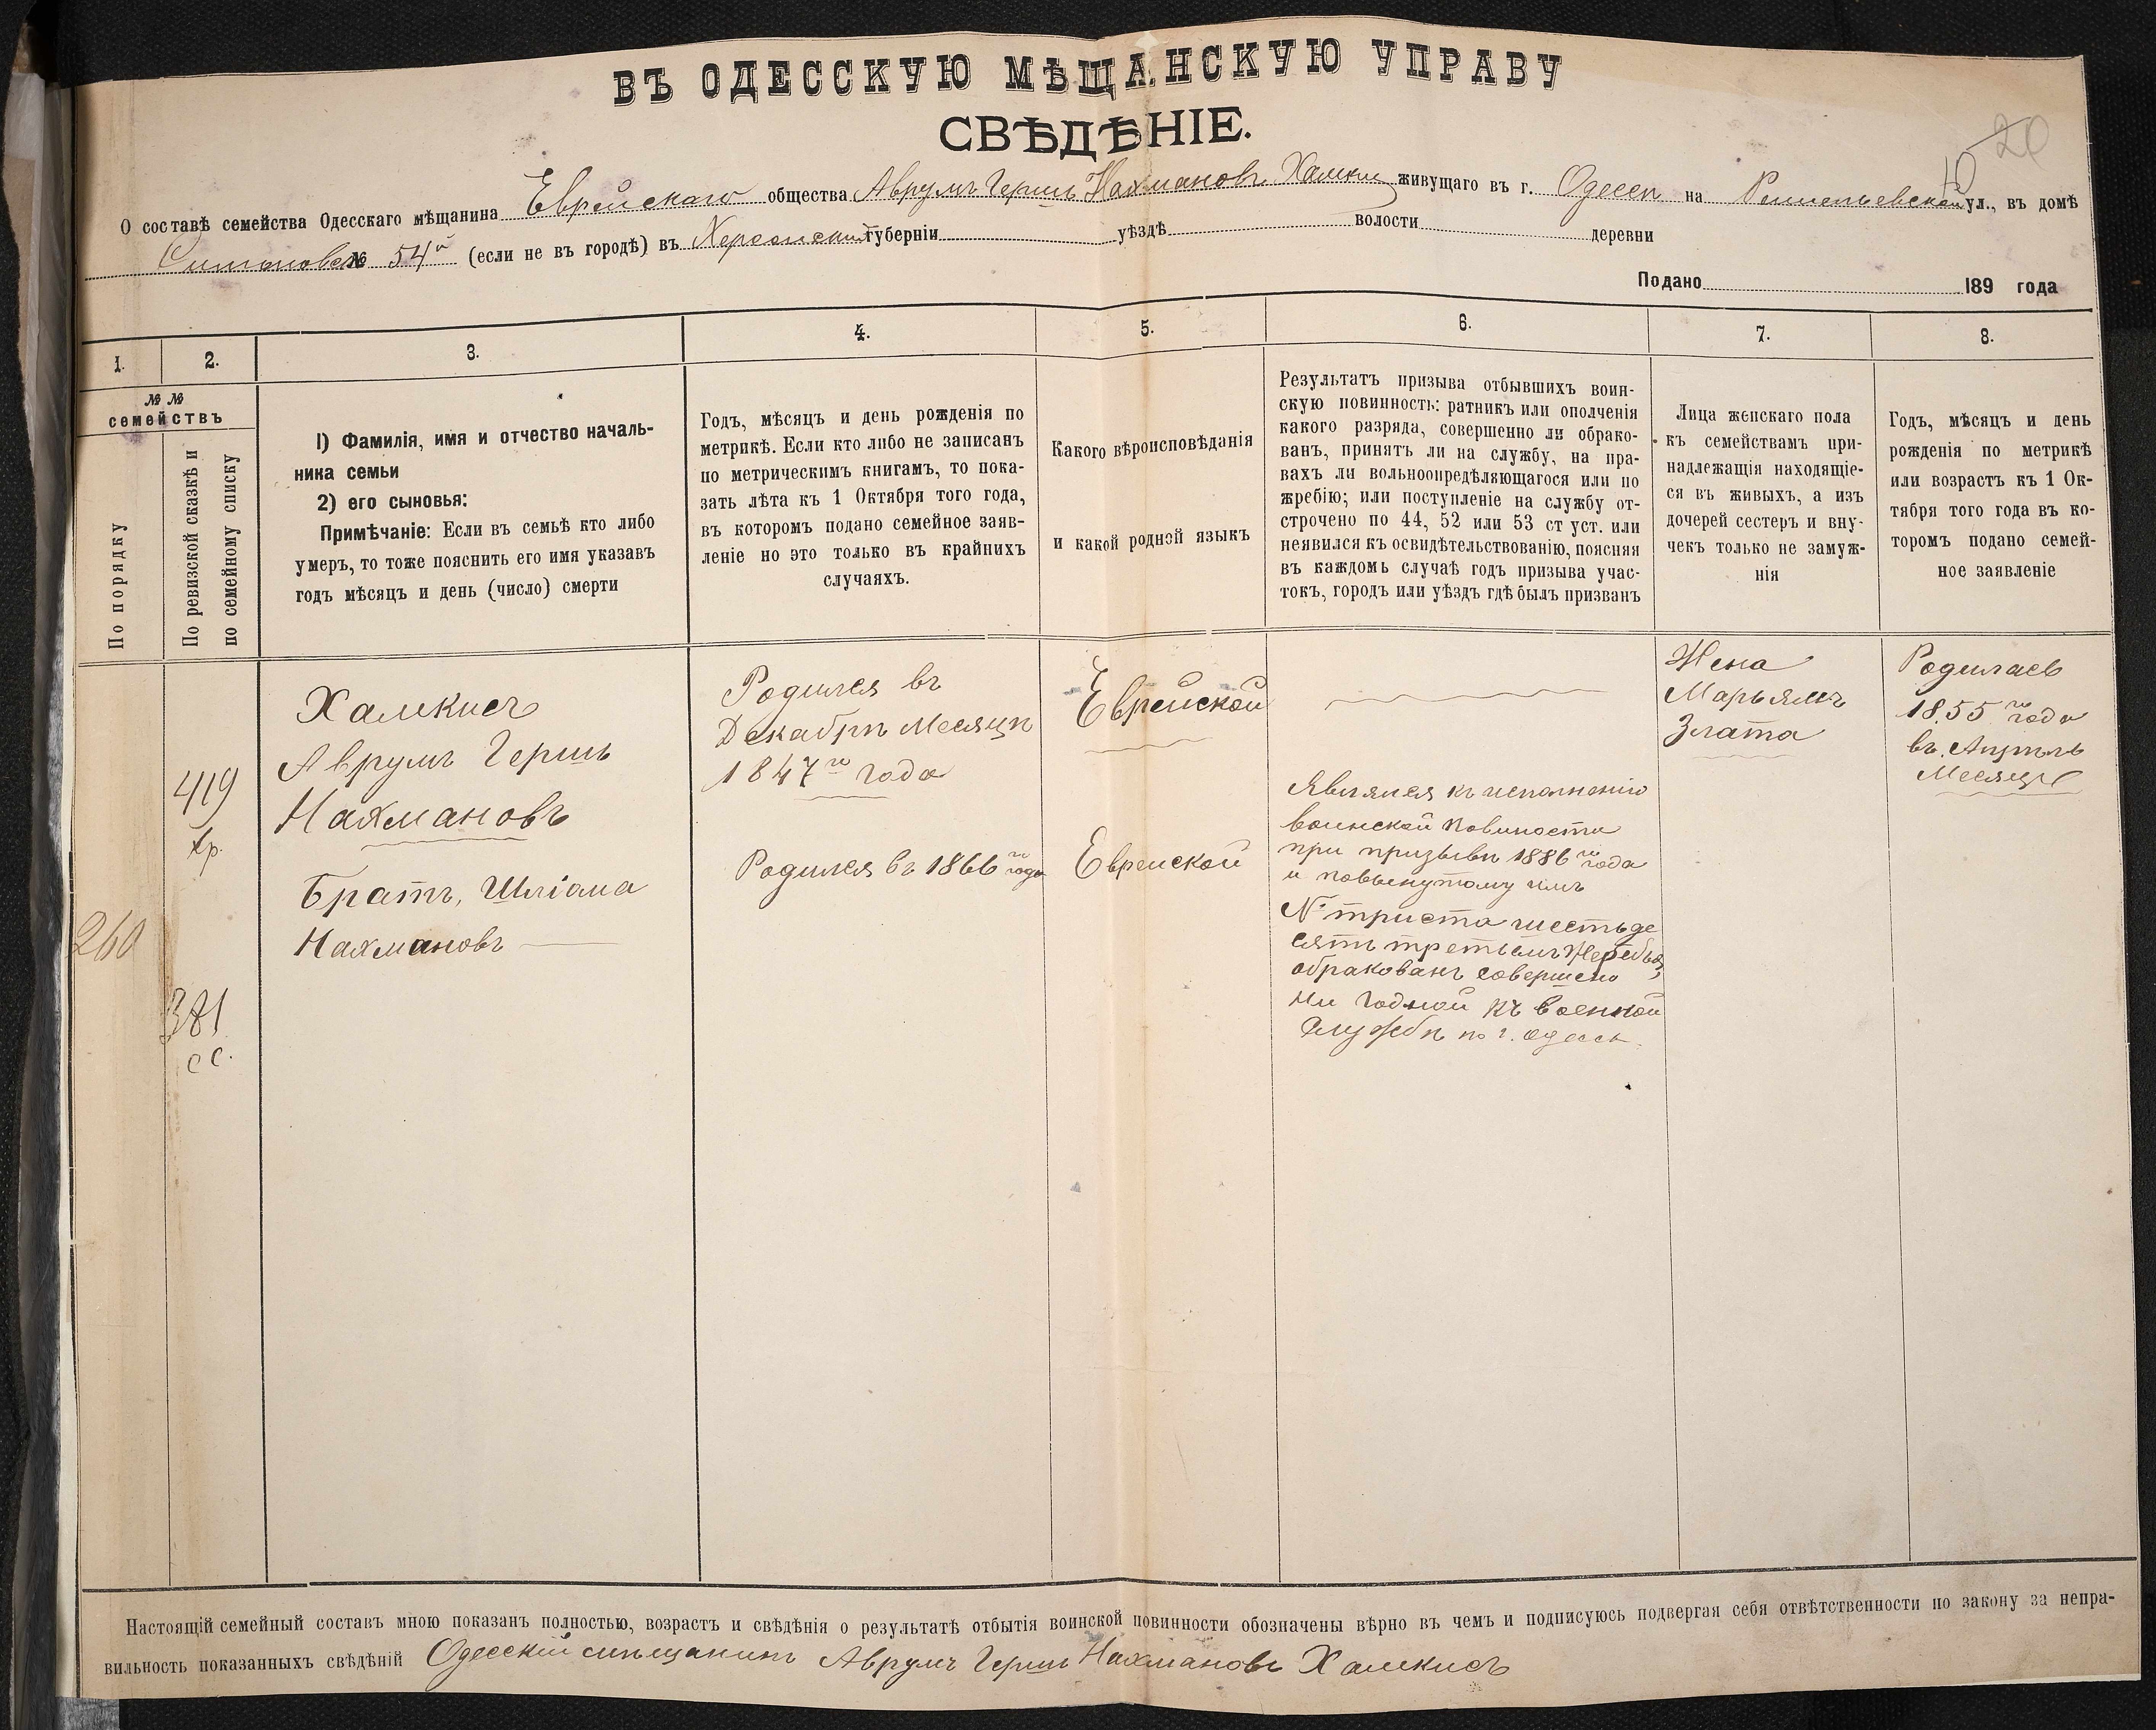 ВЪ ОДЕССКУЮ МѢЩАНСКУЮ УПРАВУ
СВѢДѢНІЕ.
20
О составѣ семейства Одесскаго мѣщанина Еврейскаго общества Аврумъ Гершь Нахмановъ Халкис живущаго въ г. Одессѣ на Ришельевской ул., въ домѣ
№ 54й (если не въ городѣ) въ Херсонской губерніи уѣздѣ волости деревни
Подано 189 года
1. 2. 3. 4. 5. 6. 7. 8.
№ №
семействъ
По порядку
По ревизской сказкѣ и
по семейному списку
1) Фамилія, имя и отчество началь-
ника семьи
2) его сыновья:
Примѣчаніе: Если въ семьѣ кто либо
умеръ, то тоже пояснить его имя указавъ
годъ мѣсяцъ и день (число) смерти
Годъ, мѣсяцъ и день рожденія по
метрикѣ. Если кто либо не записанъ
по метрическимъ книгамъ, то пока-
зать лѣта къ 1 Октября того года,
въ которомъ подано семейное заяв-
леніе но это только въ крайнихъ
случаяхъ.
Какого вѣроисповѣданія
и какой родной языкъ
Результатъ призыва отбывшихъ воин-
скую повинность: ратникъ или ополченія
какого разряда, совершенно ли обрако-
ванъ, принятъ ли на службу, на пра-
вахъ ли вольноопредѣляющагося или по
жребію; или поступленіе на службу от-
строчено по 44, 52 или 53 ст уст. или
неявился къ освидѣтельствованію, поясняя
въ каждомъ случаѣ годъ призыва учас-
токъ, городъ или уѣздъ гдѣ былъ призванъ
Лица женскаго пола
къ семействамъ при-
надлежащія находящіе-
ся въ живыхъ, а изъ
дочерей сестеръ и вну-
чекъ только не замуж-
нія
Годъ, мѣсяцъ и день
рожденія по метрикѣ
или возрастъ къ 1 Ок-
тября того года въ ко-
торомъ подано семей-
ное заявленіе
260
419
хр.
381
сс.
Халкисъ
Аврумъ Гершь
Нахмановъ
Братъ, Шліома
Нахмановъ
Родился въ
Декабрѣ Месяцѣ
1847го года
Родился въ 1866го года
Еврейской
Еврейской
Явился къ исполненію
воинской повиности
при призывѣ 1886го года
и повынутому имъ
№ триста шестьде
сятъ третьемъ Жеребью,
обракованъ совершено
ни годной къ военной
службѣ по г. Одессѣ.
Жена
Марьямъ
Злата
Родилась
1855го года
въ Апрѣль
Месяцѣ
Настоящій семейный составъ мною показанъ полностью, возрастъ и свѣдѣнія о результатѣ отбытія воинской повинности обозначены вѣрно въ чемъ и подписуюсь подвергая себя отвѣтственности по закону за непра-
вильность показанныхъ свѣдѣній Одесскій мѣщанинъ Аврумъ Гершь Нахмановъ Халкисъ